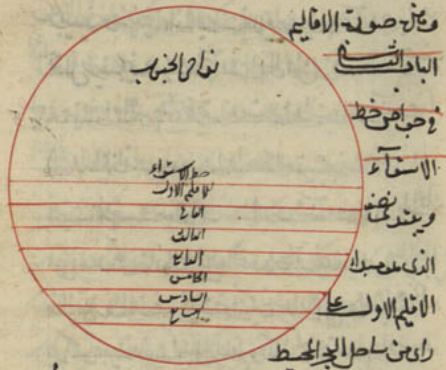 وهذه صورة الاقاليم
الباب الثاني
في خواص خط
الاستوآء
الذي عليه مبدا
الاقليم الاول على
راى من ساحل البحر المحيط
نواحى الجنوب
خط الاستواء
الاقليم الاول
الثانى
الثالث
الرابع
الخامس
السادس
السابع